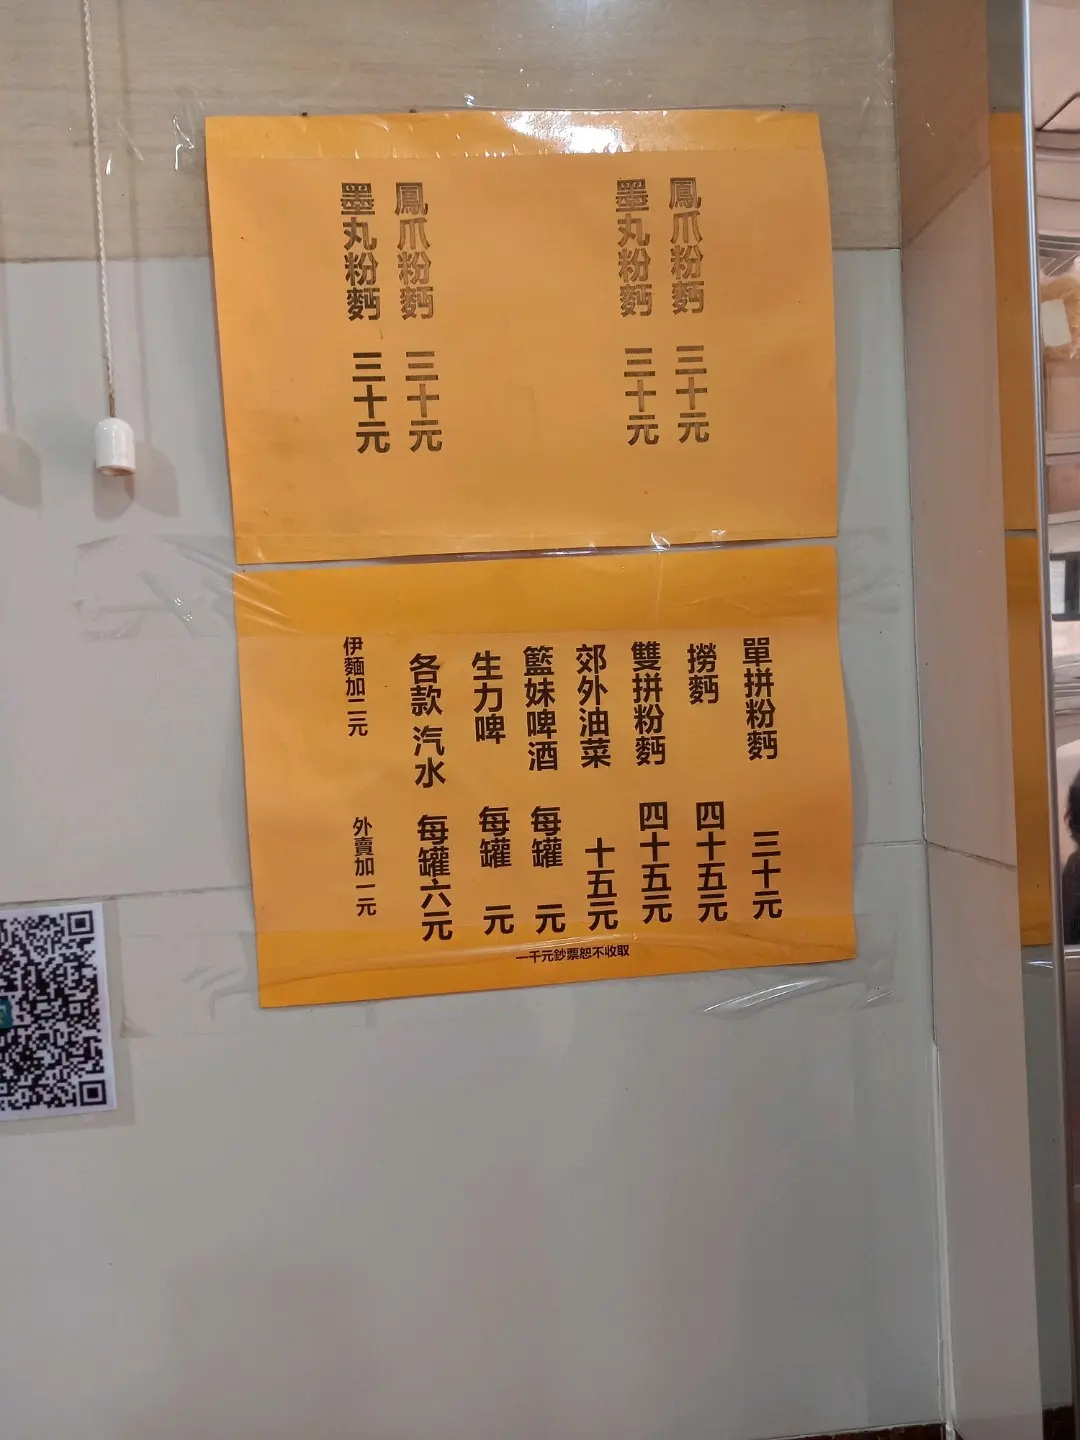 鳳爪粉麪 三十元
墨丸粉麪 三十元
鳳爪粉麪 三十元
墨丸粉麪 三十元
單拼粉麪 三十元
撈麪 四十五元
雙拼粉麪 四十五元
郊外油菜 十五元
籃妹啤酒 每罐 元
生力啤 每罐 元
各款 汽水 每罐六元
伊麵加二元 外賣加一元
一千元鈔票恕不收取